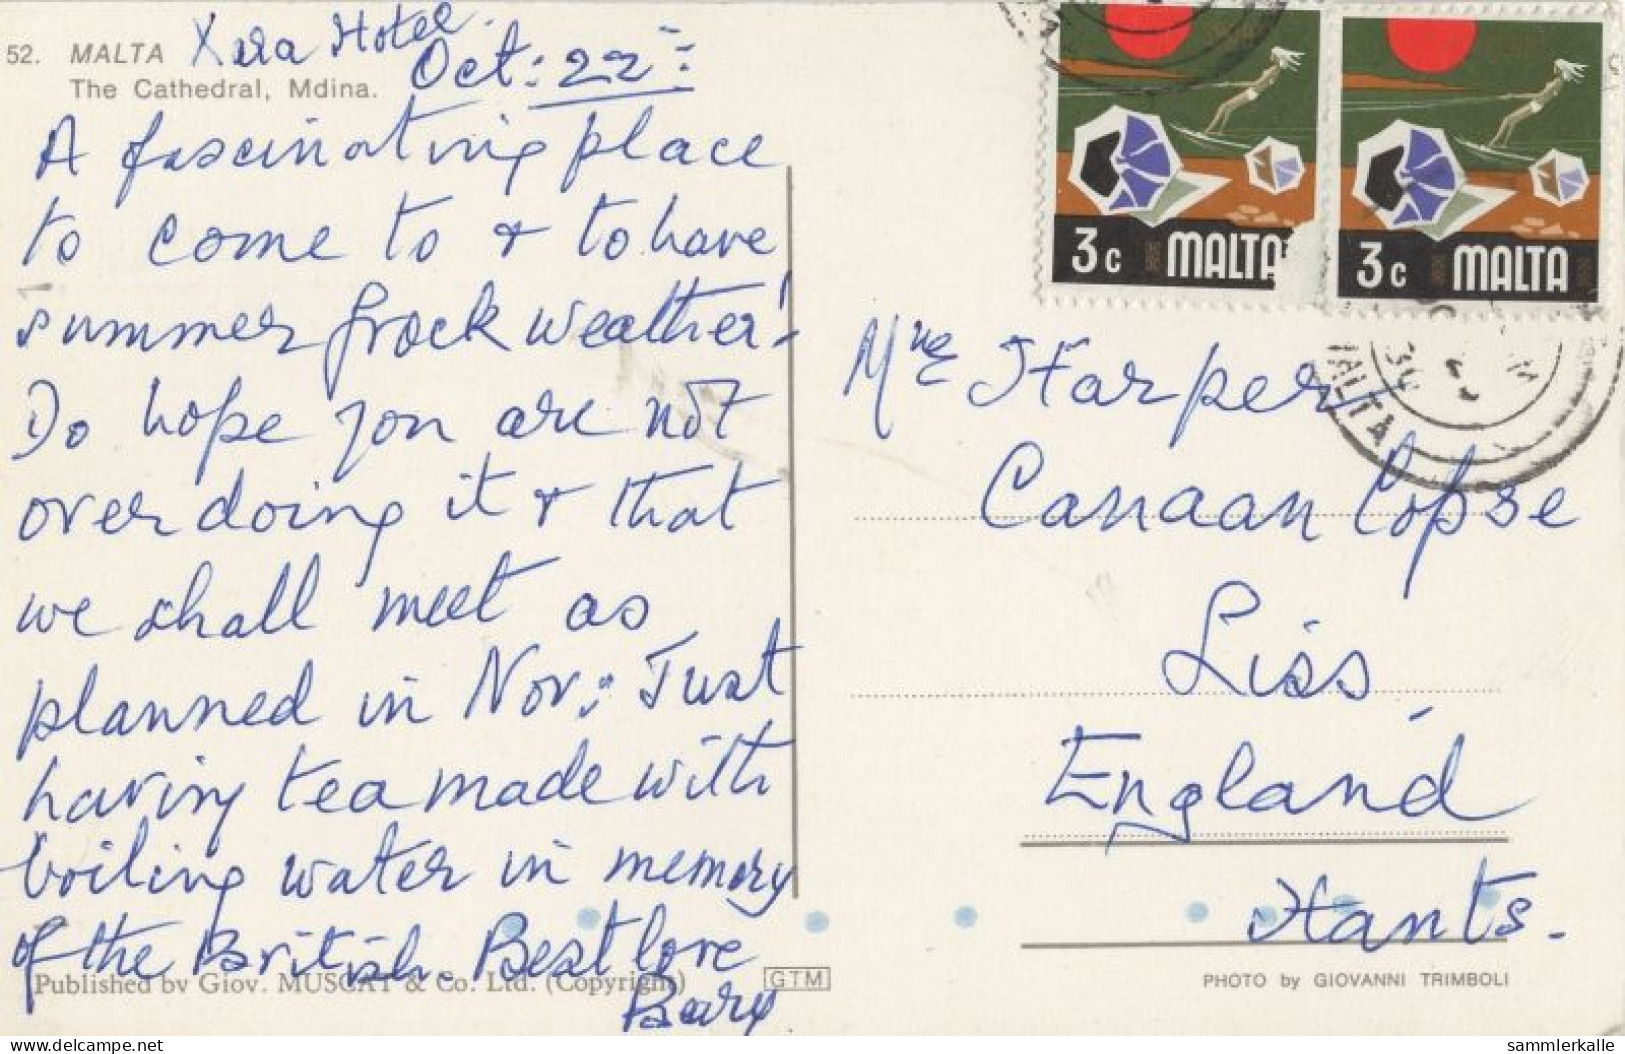 52. MALTA Xara Hotel.
The Cathedral, Mdina. Oct: 22nd
A fascinating place
to come to & to have
summer frock weather!
Do hope you are not
over doing it & that
we shall meet as
planned in Nov: Just
having tea made with
boiling water in memory
of the British. Best love
Published by Giov. MUSCAT & Co. Ltd. (Copyright)
GTM
3c MALTA
3c MALTA
MALTA
Harper
Canaan Copse
Liss,
England
Hants.
PHOTO by GIOVANNI TRIMBOLI
www.delcampe.net
sammlerkalle